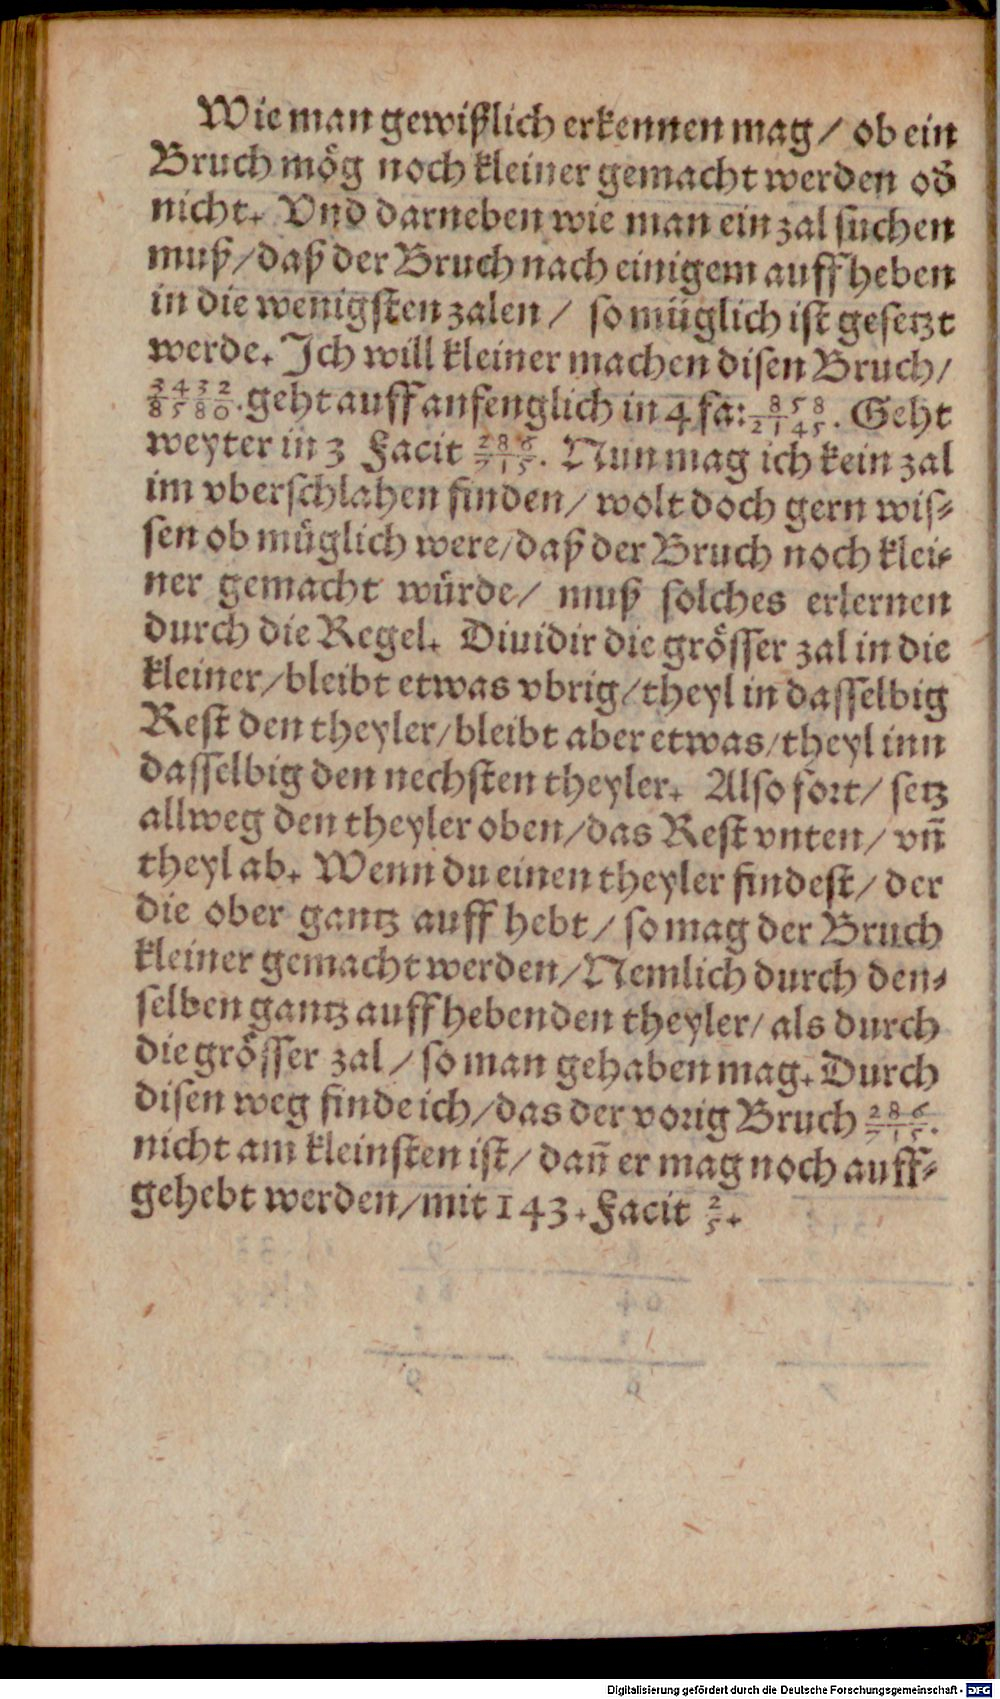 Wie man gewißlich erkennen mag / ob ein
Bruch mög noch kleiner gemacht werden od̃
nicht. Vnd darneben wie man ein zal suchen
muß / daß der Bruch nach einigem auffheben
in die wenigsten zalen / so müglich ist gesetzt
werde. Ich will kleiner machen disen Bruch /
3432/8580. geht auff anfenglich in 4 fa: 858/2145. Geht
weyter in 3 Facit 286/715. Nun mag ich kein zal
im vberschlahen finden / wolt doch gern wis⸗
sen ob müglich were / daß der Bruch noch klei⸗
ner gemacht würde / muß solches erlernen
durch die Regel. Diuidir die grösser zal in die
kleiner / bleibt etwas vbrig / theyl in dasselbig
Rest den theyler / bleibt aber etwas / theyl inn
dasselbig den nechsten theyler. Also fort / setz
allweg den theyler oben / das Rest vnten / vñ
theyl ab. Wenn du einen theyler findest / der
die ober gantz auff hebt / so mag der Bruch
kleiner gemacht werden / Nemlich durch den⸗
selben gantz auffhebenden theyler / als durch
die grösser zal / so man gehaben mag. Durch
disen weg finde ich / das der vorig Bruch 286/715.
nicht am kleinsten ist / dañ er mag noch auff⸗
gehebt werden / mit 143. Facit 2/5.
Digitalisierung gefördert durch die Deutsche Forschungsgemeinschaft - DFG